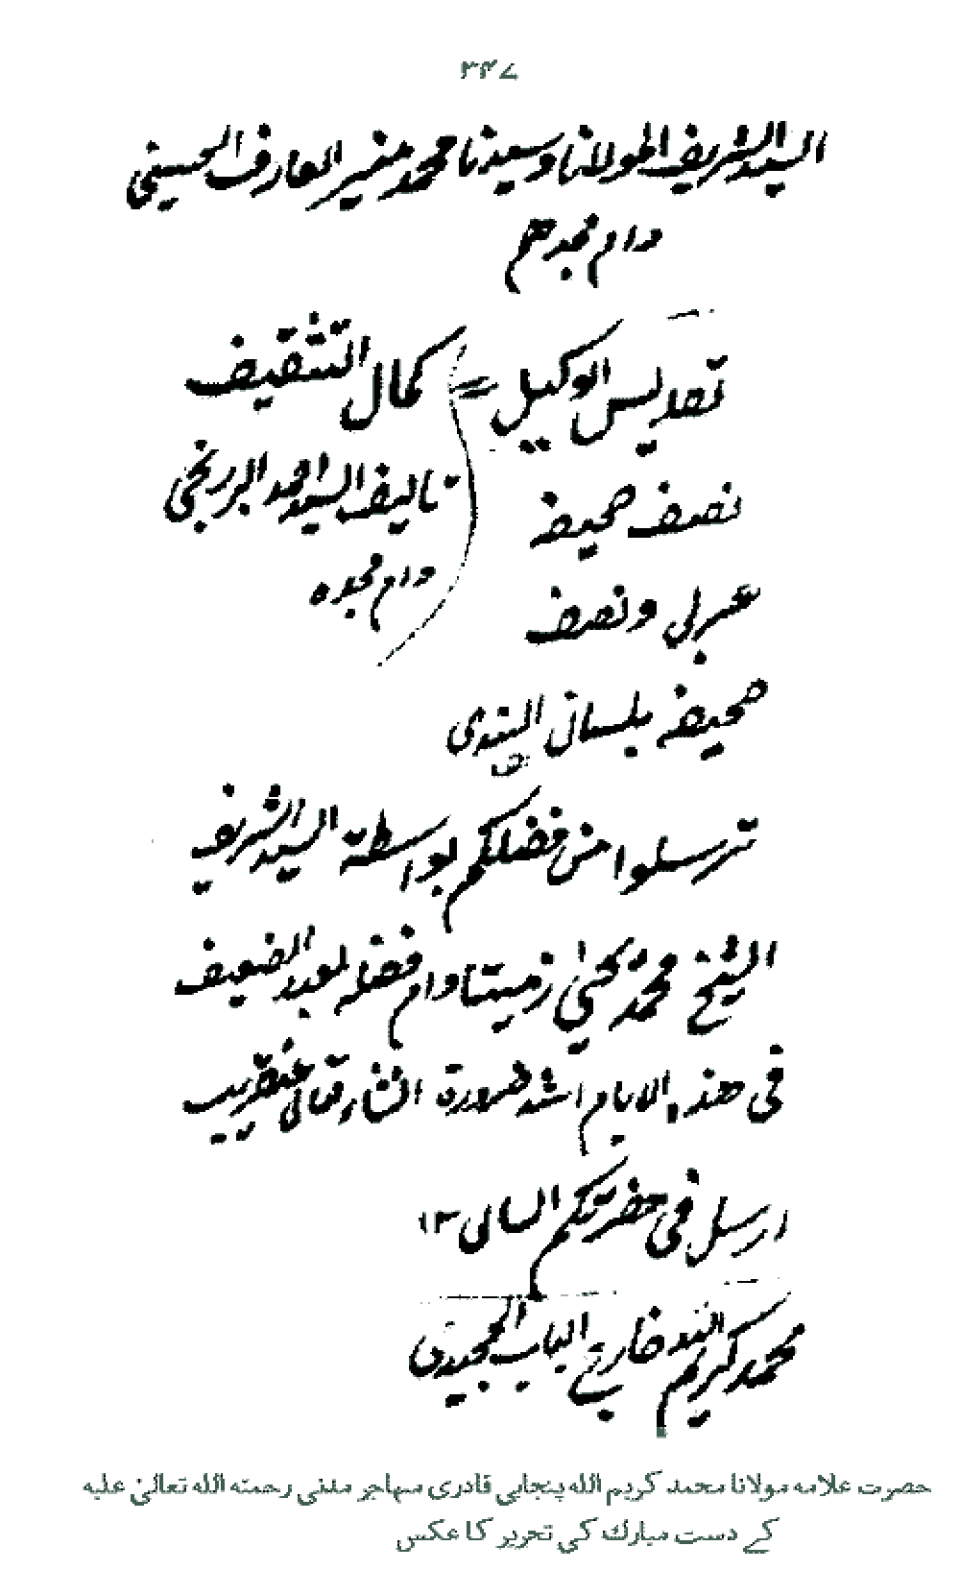 ۳۴۷
السید الشریف المولانا وسیدنا محمد منیر العارف الحسینی
دام مجدهم
تقدیس الوکیل = کمال التثقیف
نصف صحیفه تالیف السید احمد البرزنجی
عربی ونصف دام مجده
صحیفه بلسان الهندی
ترسلوا من فضلکم بواسطة السید الشریف
الشیخ محمد یحیٰی زمیتا دام فضله لعبد الضعیف
فی هذه الایام اشد ضرورة انشاء تعالی عنقریب
ارسل فی حضرتکم السامی ۱۲
محمد کریم الله خارج الباب المجیدی
حضرت علامه مولانا محمد کریم الله پنجابی قادری مهاجر مدنی رحمته الله تعالیٰ علیه
کے دست مبارک کی تحریر کا عکس